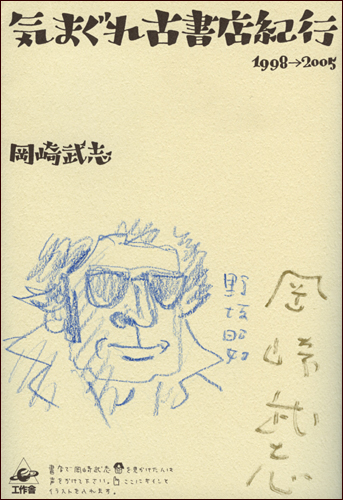 気まぐれ古書店紀行
1998→2005
岡崎武志
野坂昭如
岡崎武志
書店で岡崎武志を見かけた人は
声をかけて下さい。ここにサインと
イラストを入れます。
工作舎